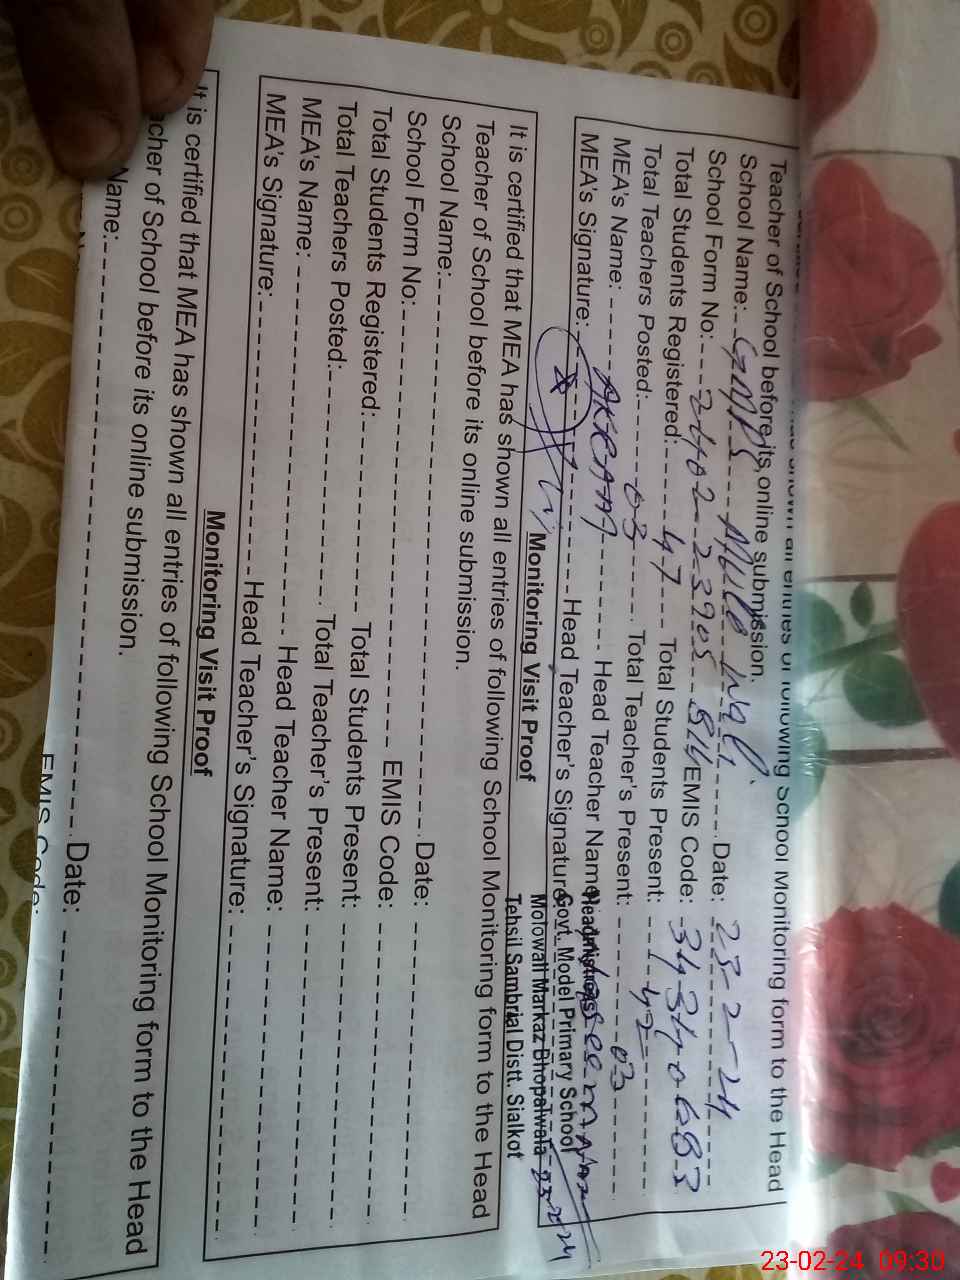 Teacher of School before its online submission.
School Name: GMPS Date: 23-2-24
School Form No: EMIS Code:
Total Students Registered: 47 Total Students Present: 42
Total Teachers Posted: 03 Total Teacher's Present: 03
MEA's Name: AKRAM Head Teacher Name:
MEA's Signature: Head Teacher's Signature:
Headmistress
Govt. Model Primary School
Molowali Markaz Bhopalwala
Tehsil Sambrial Distt. Sialkot
Monitoring Visit Proof
It is certified that MEA has shown all entries of following School Monitoring form to the Head
Teacher of School before its online submission.
School Name: Date:
School Form No: EMIS Code:
Total Students Registered: Total Students Present:
Total Teachers Posted: Total Teacher's Present:
MEA's Name: Head Teacher Name:
MEA's Signature: Head Teacher's Signature:
Monitoring Visit Proof
It is certified that MEA has shown all entries of following School Monitoring form to the Head
of School before its online submission.
Name: Date:
EMIS Code:
23-02-24 09:30